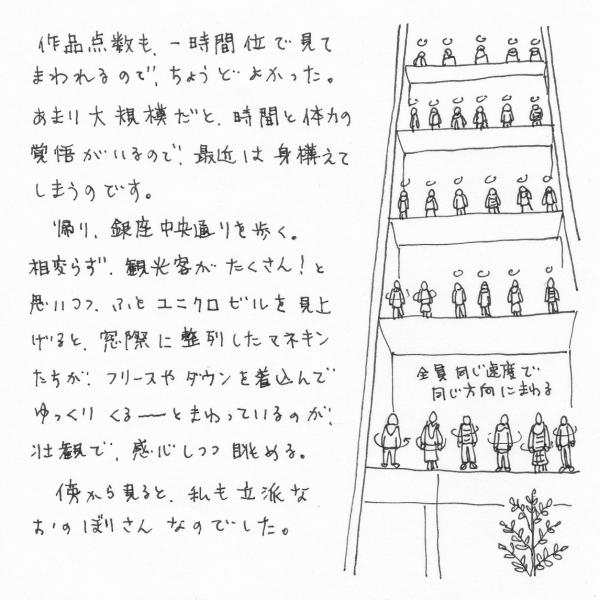 作品点数も、一時間位で見て
まわれるので、ちょうどよかった。
あまり大規模だと、時間と体力の
覚悟がいるので、最近は身構えて
しまうのです。
帰り、銀座中央通りを歩く。
相変らず、観光客がたくさん!と
思いつつ、ふとユニクロビルを見上
げると、窓際に整列したマネキン
たちが、フリースやダウンを着込んで
ゆっくりくるーーとまわっているのが、
壮観で、感心しつつ眺める。
傍から見ると、私も立派な
おのぼりさんなのでした。
全員同じ速度で
同じ方向にまわる